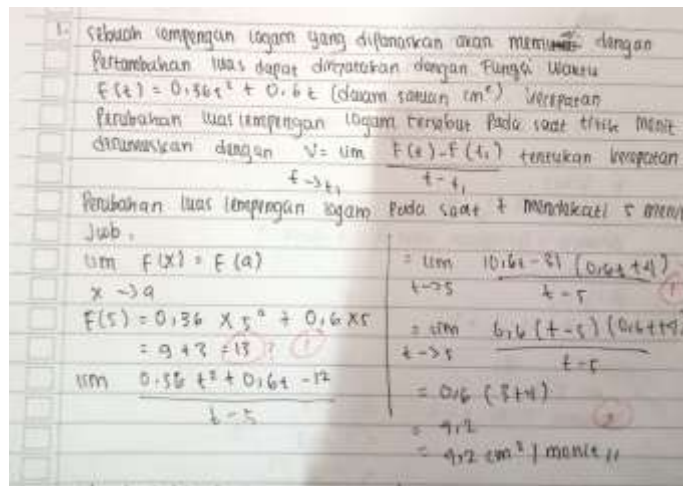 1. Sebuah lempengan logam yang dipanaskan akan dengan
Pertambahan luas dapat dinyatakan dengan Fungsi waktu
F(t) = 0,36t² + 0,6t (dalam satuan cm²) kecepatan
Perubahan luas lempengan logam tersebut Pada saat menit
dirumuskan dengan V = lim F(t) - F(t₁) tentukan kecepatan
t → t₁ t - t₁
Perubahan luas lempengan logam Pada saat t mendekati 5 menit
Jwb.
lim F(x) = F(a)
x → a
F(5) = 0,36 × 5² + 0,6 × 5
= 9 + 3 =
lim t² + 0,6t - 12
t - 5
= lim (0,6t - 3) (0,6t + 4)
t → 5 t - 5
= lim (t - 5) (0,6t + 4)
t → 5 t - 5
= 0,6 (3+4)
=
= cm² / menit //